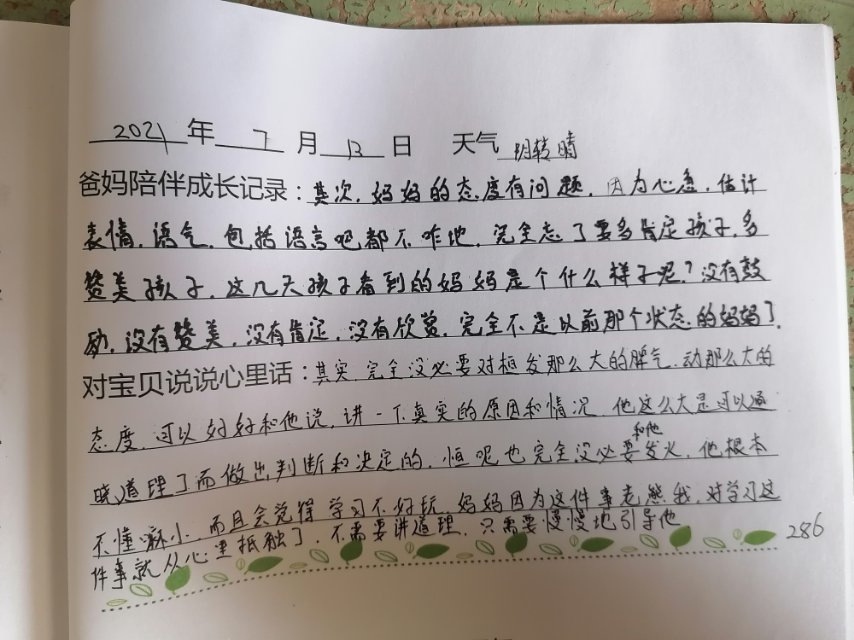 2021年7月13日 天气 阴转晴
爸妈陪伴成长记录：其次，妈妈的态度有问题，因为心急，估计
表情，语气，包括语言吧都不咋地，完全忘了要多肯定孩子，多
赞美孩子，这几天孩子看到的妈妈是个什么样子呢？没有鼓
励，没有赞美，没有肯定，没有欣赏，完全不是以前那个状态的妈妈了。
对宝贝说说心里话：其实，完全没必要对桓发那么大的脾气，动那么大的
态度，可以好好和他说，讲一下真实的原因和情况，他这么大是可以通
晓道理了而做出判断和决定的，恒呢也完全没必要和他发火，他根本
不懂嘛小，而且会觉得学习不好玩，妈妈因为这件事老熊我，对学习这
件事就从心里抵触了，不需要讲道理，只需要慢慢地引导他
286